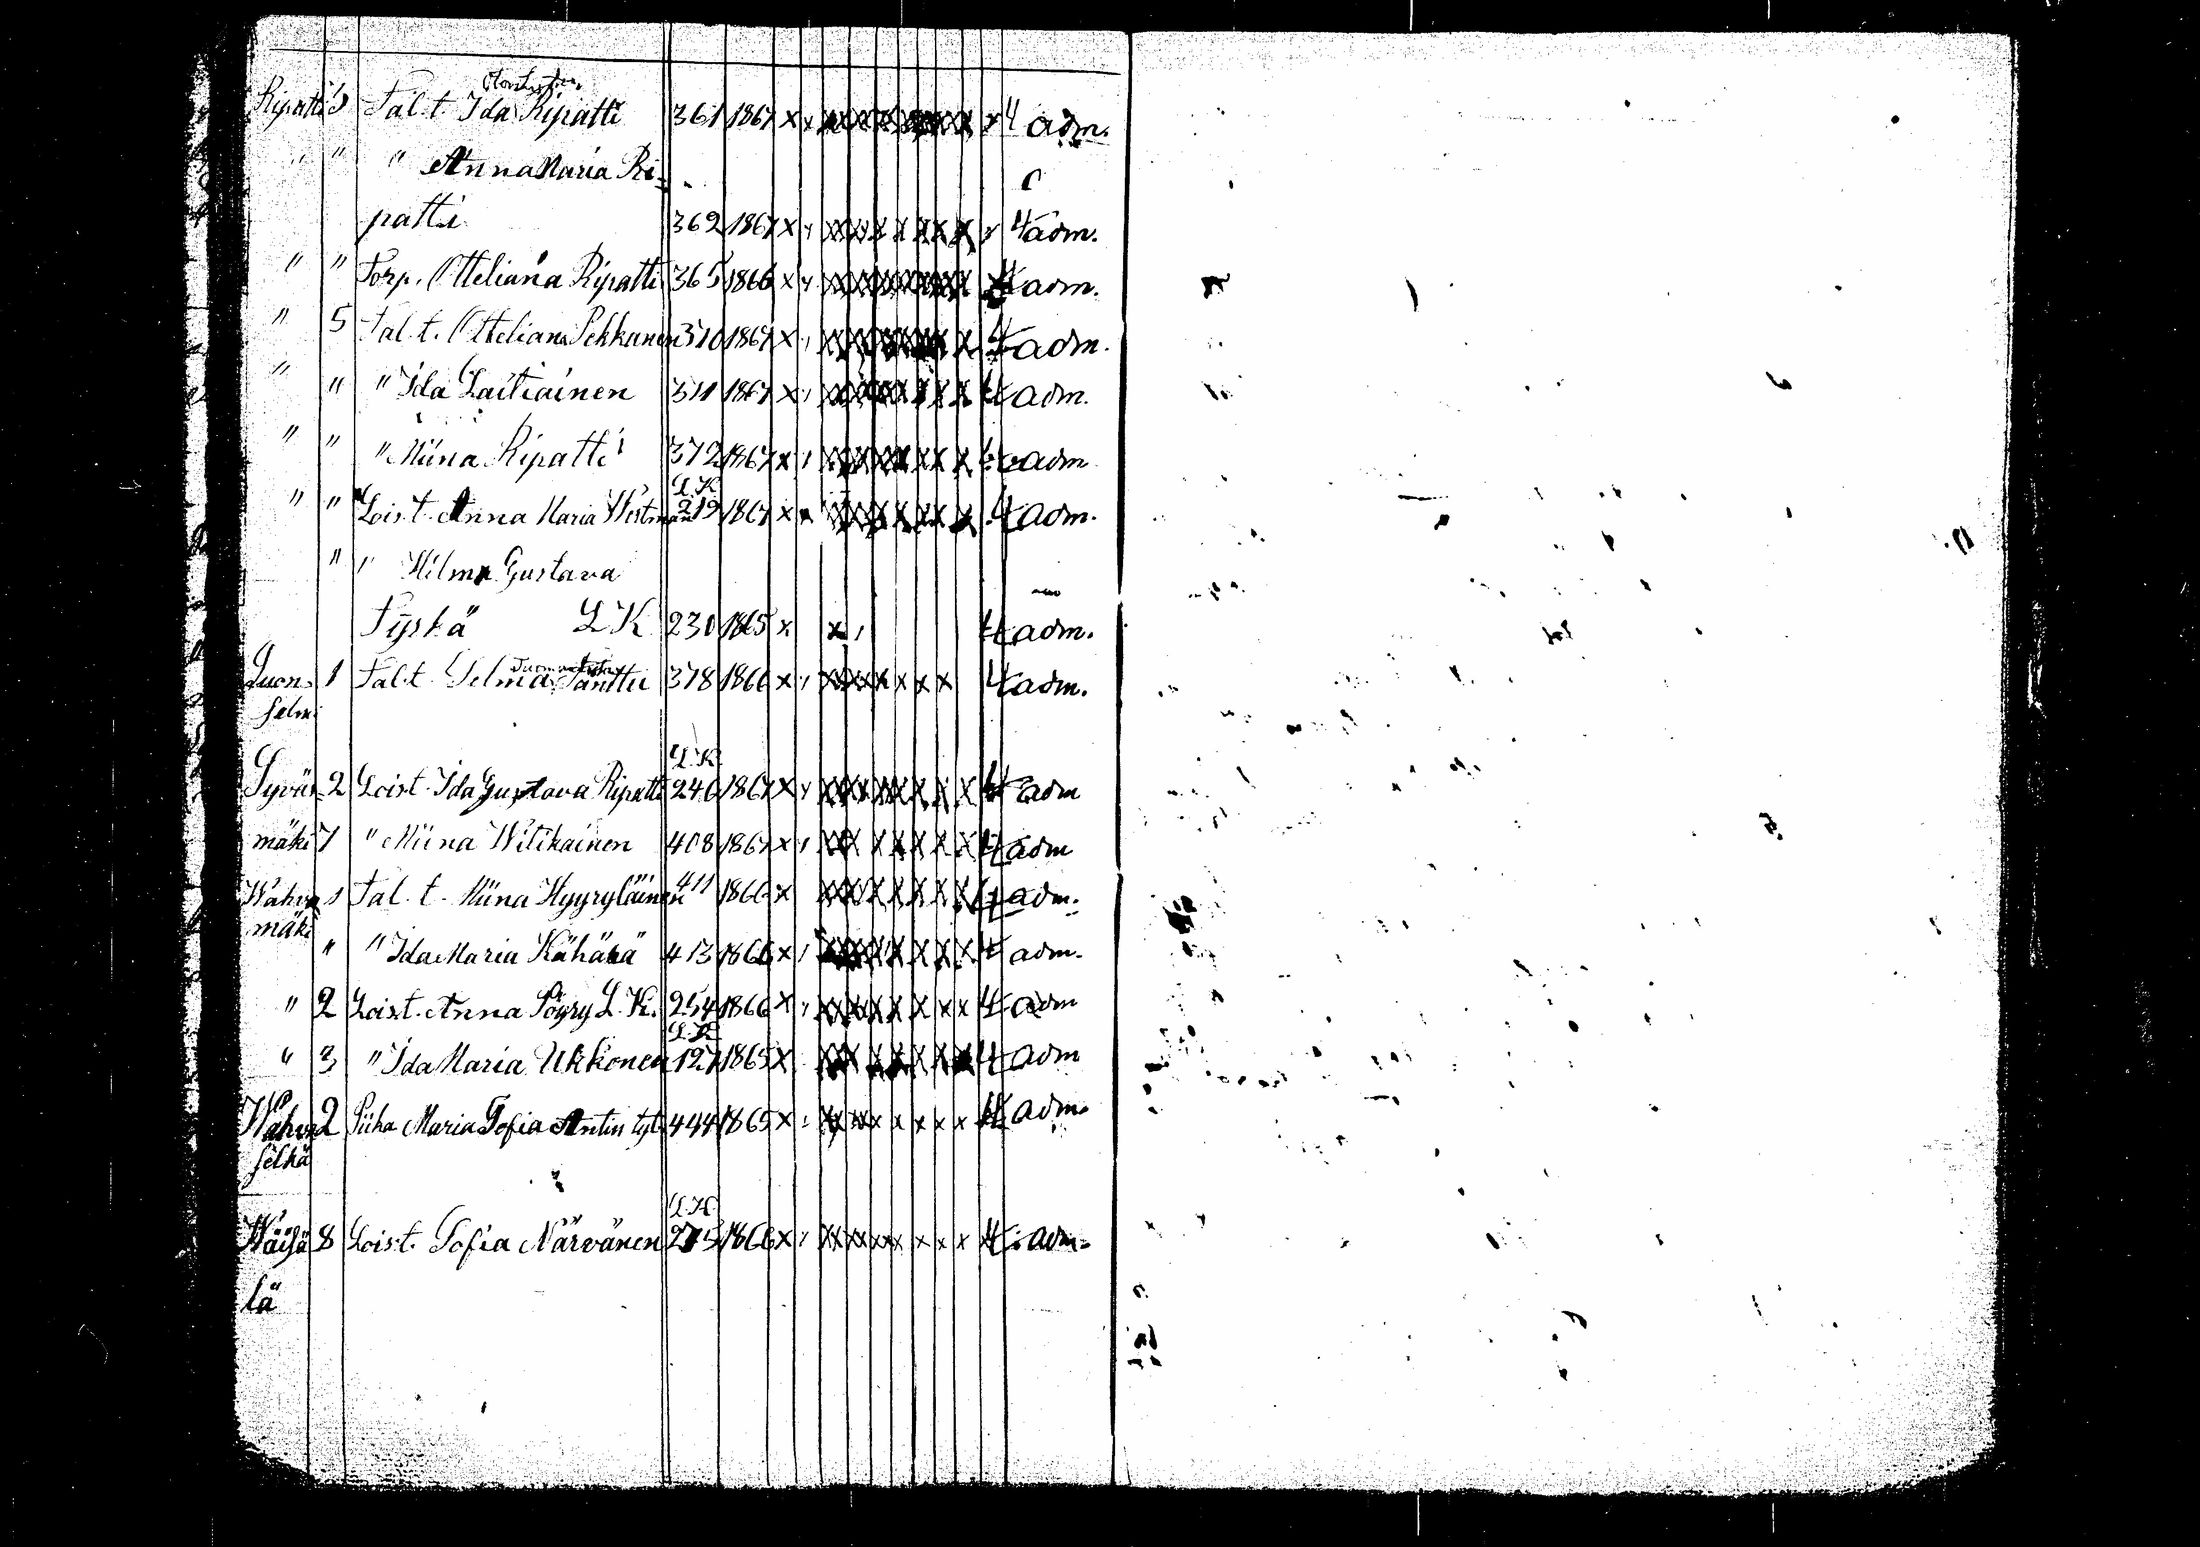 Ripatti 3 Tal. t. Ida Ripatti 361 1867 x x 4 adm.
" " " Anna Maria Ri-
patti 362 1867 x x x x x x x x 4 adm.
" " Torp. Otteliana Ripatti 365 1866 x 4 adm.
" 5 Tal. t. Otteliana Pekkanen 370 1867 x 4 adm.
" " " Ida Laitiainen 371 1867 x 4 adm.
" " " Miina Ripatti 372 1867 x adm
L. K.
" " Loist. Anna Maria Westman 219 1867 x 4 adm.
" " Hilma Gustava
Tyskä L K 230 1865 x x 4 adm.
Luon- 1 Tal. t. Selma Tanttu 378 1866 x 4 adm.
selmi
L. K.
Syvän- 2 Loist. Ida Gustava Ripatti 246 1867 x 4 adm
mäki 7 " Miina Wilikainen 408 1867 x 4 adm
Wahva 1 Tal. t. Miina Hyyryläinen 411 1866 x 4 adm.
mäki
" " Ida Maria Kähärä 413 1866 x 4 adm.
" 2 Loist. Anna Pöyry L. K. 254 1866 x 4 adm
L. K.
" 3 " Ida Maria Ukkonen 127 1865 x 4 adm
Wahva 2 Piika Maria Sofia Antin tyt. 444 1865 x 4 adm.
selkä
L. K.
Wäisä 8 Loist. Sofia Närvänen 275 1866 x 4 adm.
lä